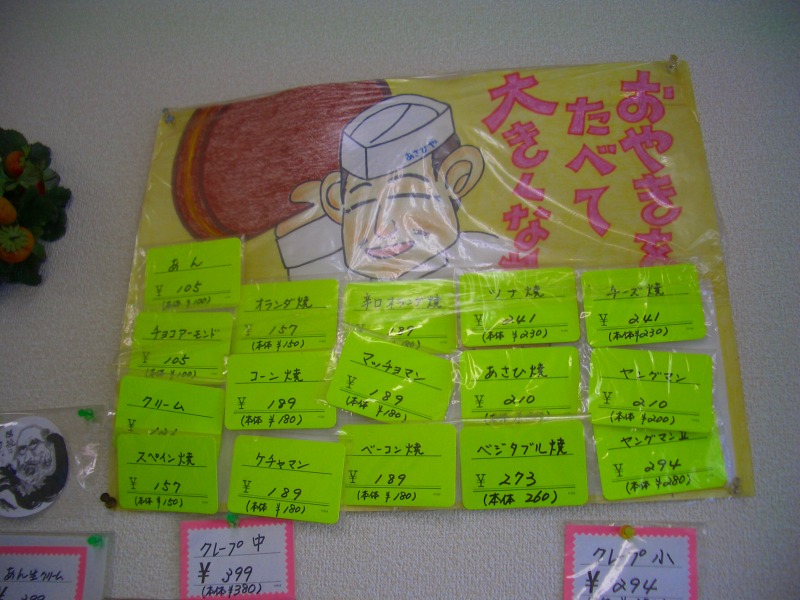 おやきを
たべて
大きくな
あさひや
あん
¥ 105
(本体 ¥100)
オランダ焼
¥ 157
(本体 ¥150)
辛口オランダ焼
¥ 189
ツナ焼
¥ 241
(本体 ¥230)
チーズ焼
¥ 241
(本体 ¥230)
チョコアーモンド
¥ 105
(本体 ¥100)
コーン焼
¥ 189
(本体 ¥180)
マッチョマン
¥ 189
(本体 ¥180)
あさひ焼
¥ 210
ヤングマン
¥ 210
(本体 ¥200)
クリーム
スペイン焼
¥ 157
(本体 ¥150)
ケチャマン
¥ 189
(本体 ¥180)
ベーコン焼
¥ 189
(本体 ¥180)
ベジタブル焼
¥ 273
(本体 260)
ヤングマンII
¥ 294
(本体 ¥280)
あん生クリーム
クレープ 中
¥ 399
(本体 ¥380)
クレープ 小
¥ 294